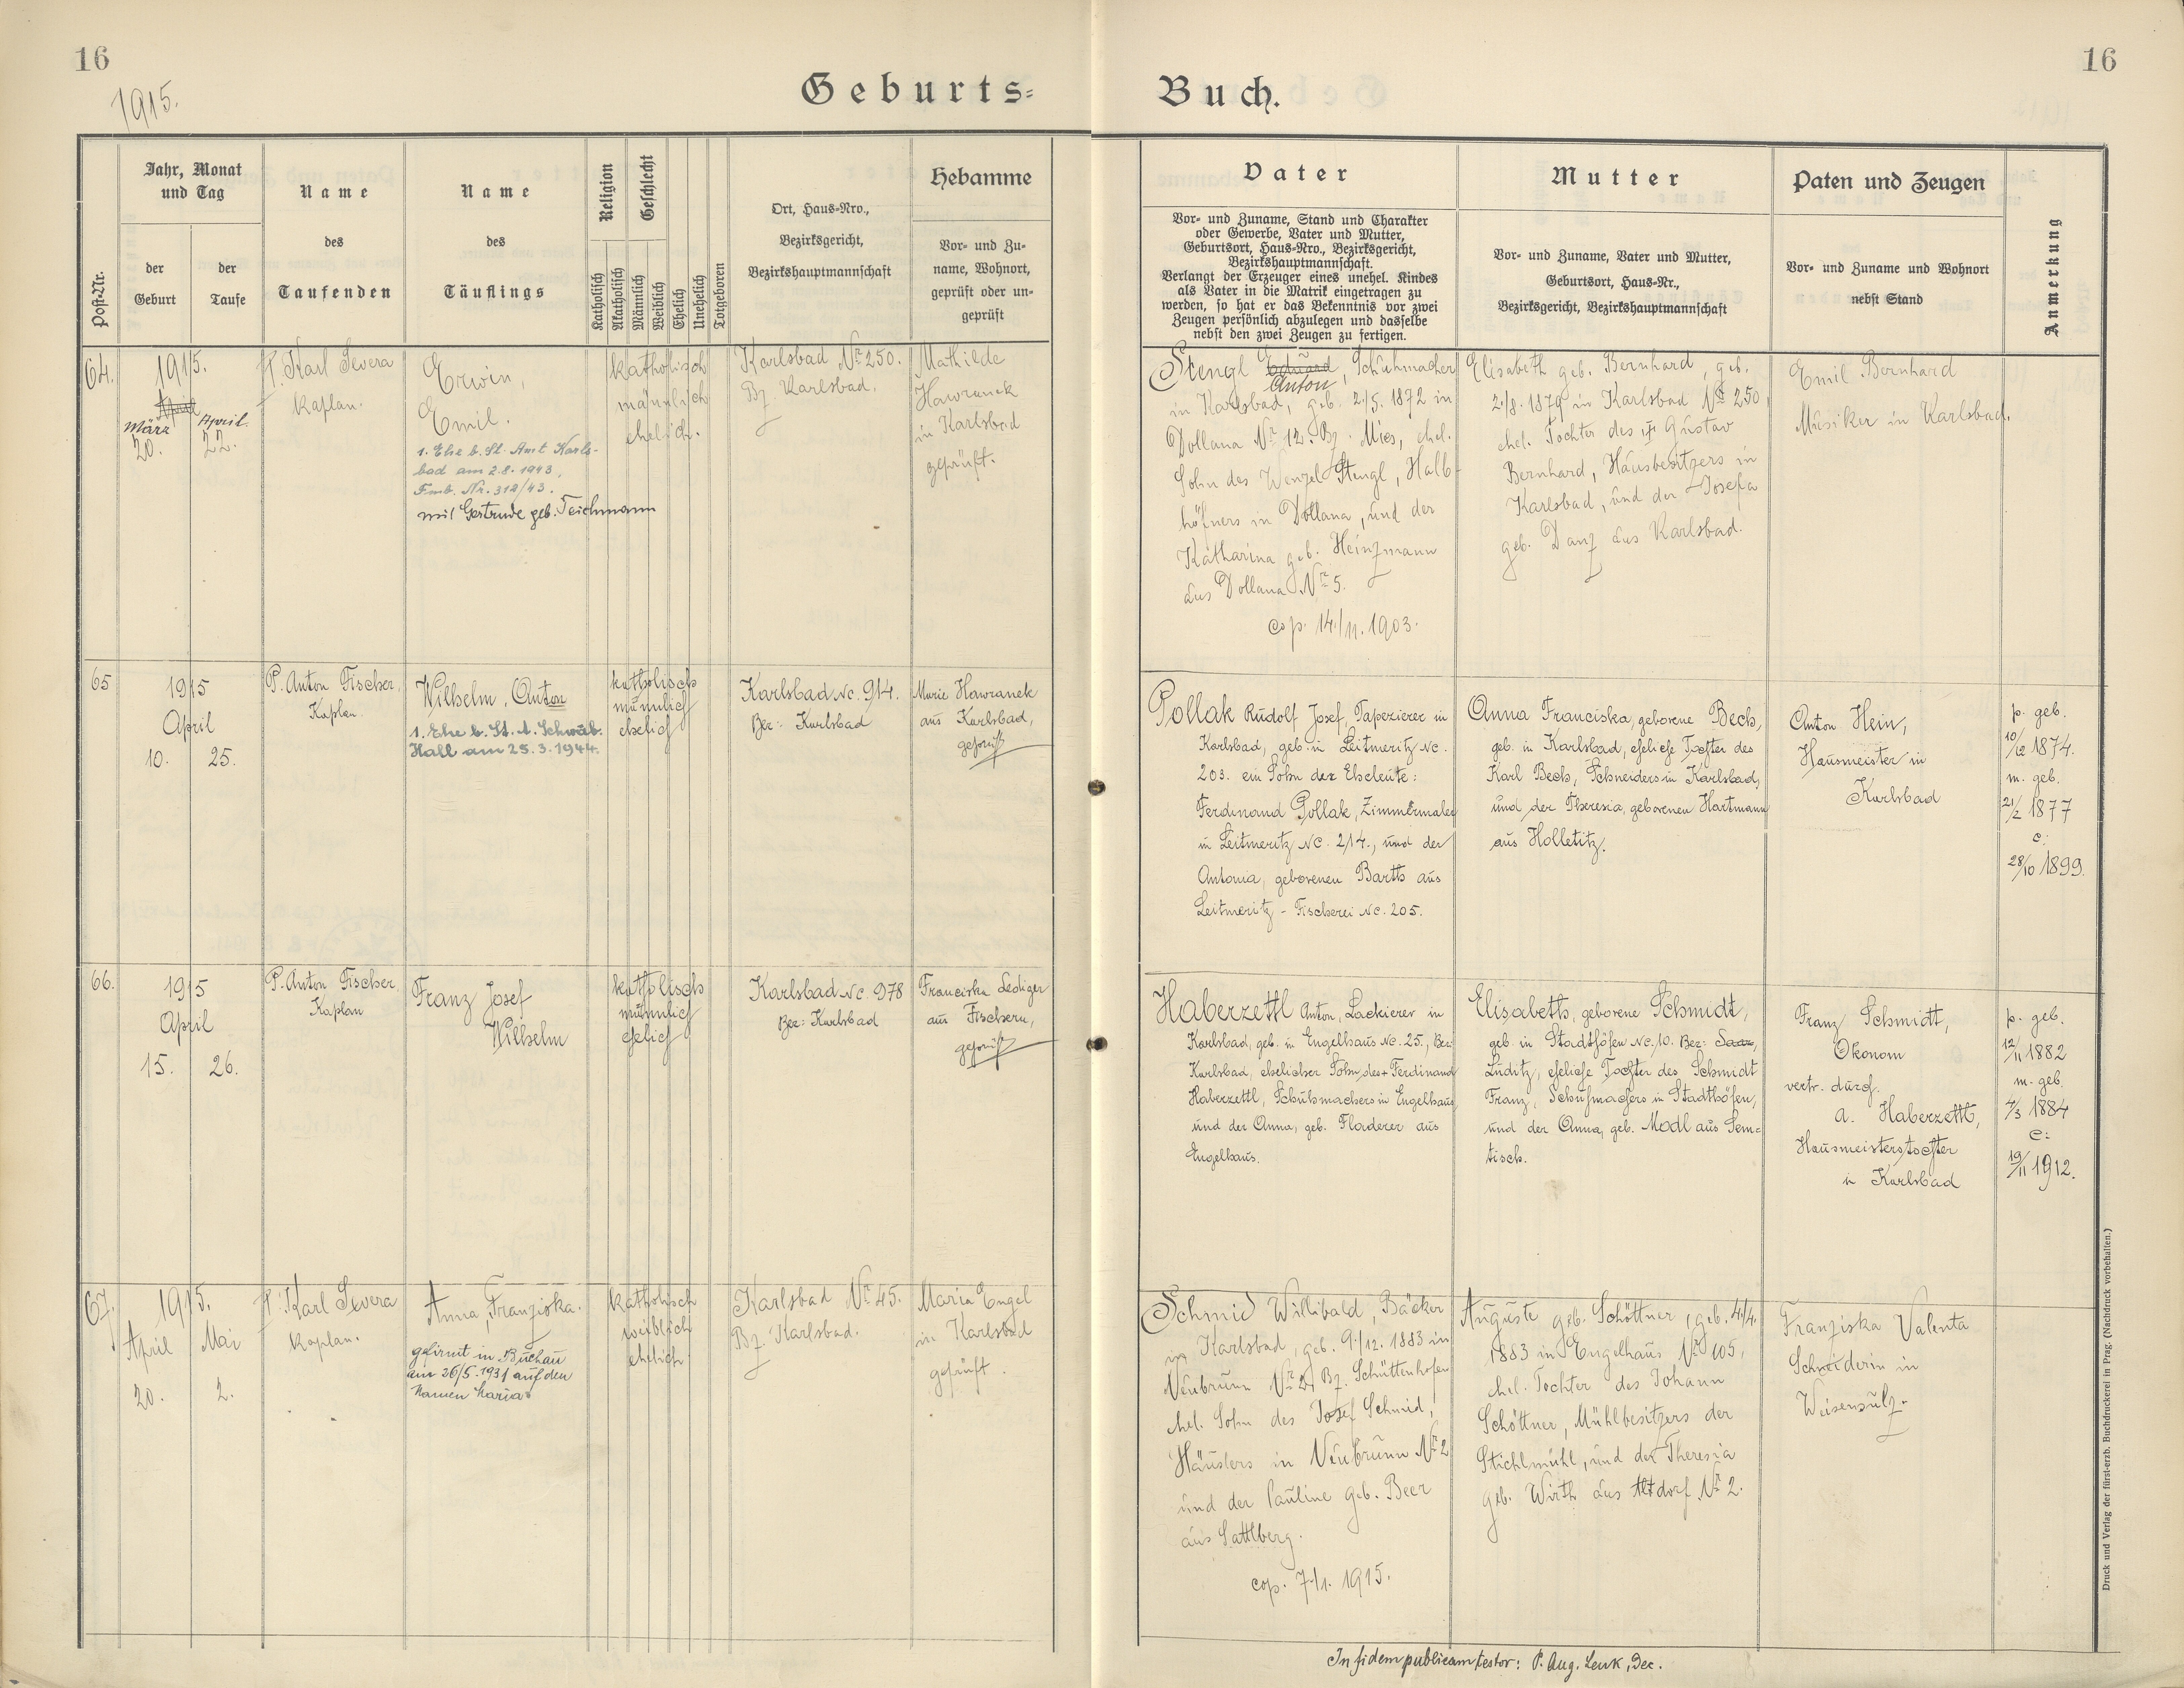 16
1915.
Geburts-
Buch.
16
Post-Nr.
Jahr, Monat
und Tag
der
Geburt
der
Taufe
Name
des
Taufenden
Name
des
Täuflings
Religion
Katholisch
Akatholisch
Geschlecht
Männlich
Weiblich
Ehelich
Unehelich
Totgeboren
Ort, Haus-Nro.,
Bezirksgericht,
Bezirkshauptmannschaft
Hebamme
Vor- und Zu-
name, Wohnort,
geprüft oder un-
geprüft
Vater
Vor- und Zuname, Stand und Charakter
oder Gewerbe, Vater und Mutter,
Geburtsort, Haus-Nro., Bezirksgericht,
Bezirkshauptmannschaft.
Verlangt der Erzeuger eines unehel. Kindes
als Vater in die Matrik eingetragen zu
werden, so hat er das Bekenntnis vor zwei
Zeugen persönlich abzulegen und dasselbe
nebst den zwei Zeugen zu fertigen.
Mutter
Vor- und Zuname, Vater und Mutter,
Geburtsort, Haus-Nr.,
Bezirksgericht, Bezirkshauptmannschaft
Paten und Zeugen
Vor- und Zuname und Wohnort
nebst Stand
Anmerkung
64.
1915.
April
März
20.
April.
22.
P. Karl Severa
Kaplan.
Erwin,
Emil.
1. Ehe b. St. Amt Karls-
bad am 2.8.1943,
Fmb. Nr. 312/43.
mit Gertrude geb. Teichmann
katholisch
männlich
ehelich.
Karlsbad Nr. 250.
Bz. Karlsbad.
Mathilde
Hawranek
in Karlsbad
geprüft.
Stengl Eduard, Schuhmacher
Anton
in Karlsbad, geb. 2./5. 1872 in
Dollana Nr. 12. Bz. Mies, ehel.
Sohn des Wenzel Stengl, Halb-
höfners in Dollana, und der
Katharina geb. Heinzmann
aus Dollana Nr. 5.
cop. 14./11. 1903.
Elisabeth geb. Bernhard, geb.
2./8. 1879 in Karlsbad Nr. 250,
ehel. Tochter des † Gustav
Bernhard, Hausbesitzers in
Karlsbad, und der Josefa
geb. Danz aus Karlsbad.
Emil Bernhard
Musiker in Karlsbad.
65
1915
April
10. 25.
P. Anton Fischer,
Kaplan.
Wilhelm, Anton
1. Ehe b. St. A. Schwäb.
Hall am 25.3.1944.
katholisch
männlich
ehelich
Karlsbad NC. 914.
Bez: Karlsbad
Marie Hawranek
aus Karlsbad,
geprüft
Pollak Rudolf Josef, Tapezierer in
Karlsbad, geb. in Leitmeritz NC.
203. ein Sohn der Eheleute:
Ferdinand Pollak, Zimmermaler
in Leitmeritz NC. 214., und der
Antonia, geborenen Barth aus
Leitmeritz - Fischerei NC. 205.
Anna Franciska, geborene Bech,
geb. in Karlsbad, eheliche Tochter des
Karl Bech, Schneiders in Karlsbad,
und der Theresia, geborenen Hartmann
aus Holletitz.
Anton Hein,
Hausmeister in
Karlsbad
p. geb.
10/12 1874.
m. geb.
21/2 1877
c:
28/10 1899.
66.
1915
April
15. 26.
P. Anton Fischer
Kaplan
Franz Josef
Wilhelm
katholisch
männlich
ehelich
Karlsbad NC. 978
Bez: Karlsbad
Franciska Lediger
aus Fischern,
geprüft
Haberzettl Anton, Lackierer in
Karlsbad, geb. in Engelhaus NC. 25., Bez:
Karlsbad, ehelicher Sohn des † Ferdinand
Haberzettl, Schuhmachers in Engelhaus,
und der Anna, geb. Floderer aus
Engelhaus.
Elisabeth, geborene Schmidt,
geb. in Stadthöfen NC. 10. Bez: Saaz,
Luditz, eheliche Tochter des Schmidt
Franz, Schuhmachers in Stadthöfen,
und der Anna, geb. Modl aus Sem=
tisch.
Franz Schmidt,
Ökonom
vertr. durch
A. Haberzettl,
Hausmeisterstochter
in Karlsbad
p. geb.
12/11 1882
m. geb.
4/3 1884
c:
19/11 1912.
67.
1915.
April Mai
20. 2.
P. Karl Severa
Kaplan.
Anna, Franziska.
gefirmt in Buchau
am 26/5.1931 auf den
Namen Maria
katholisch
weiblich
ehelich
Karlsbad Nr. 45.
Bz. Karlsbad.
Maria Engel
in Karlsbad
geprüft.
Schmid Willibald, Bäcker
in Karlsbad, geb. 9./12. 1883 in
Neubrunn Nr. 2, Bz. Schüttenhofen
ehel. Sohn des Josef Schmid,
Häuslers in Neubrunn Nr. 2
und der Pauline geb. Beer
aus Sattlberg.
cop. 7./1. 1915.
Auguste geb. Schöttner, geb. 4./4.
1883 in Engelhaus Nr. 105,
ehel. Tochter des Johann
Schöttner, Mühlbesitzers der
Stichlmühl, und der Theresia
geb. Wirth aus Altdorf Nr. 2.
Franziska Valenta
Schneiderin in
Weisensulz.
In fidem publicam testor: P. Aug. Lenk, Dec.
Druck und Verlag der fürst-erzb. Buchdruckerei in Prag. (Nachdruck vorbehalten.)